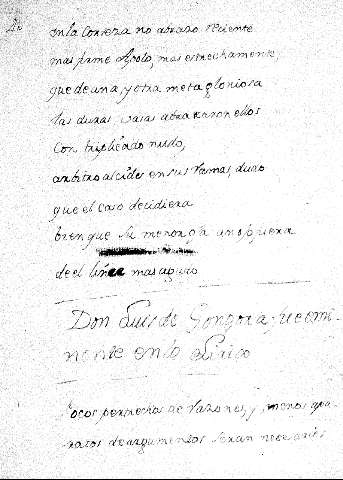 en la Corteza no abrazo reciente
mas firme Apolo, mas estrechamente,
que de una, y otra meta gloriosa
las duras vasas abrazaron ellos
Con triplicado nudo,
arbitro alcides en sus ramas, dudo
que el caso decidiera
bien que su menor oja un ojo fuera
de el lince mas agudo
Don Luis de Gongora fue emi-
nente en lo Lirico
Pocos pertrechos de razones, y menos apa-
ratos de argumentos seran necesarios